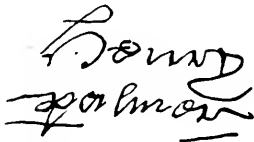 Henry
palmer